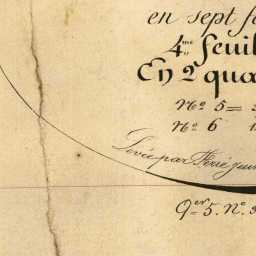 en sept f
4me feuil
En 2 qua
No 5 =
No 6
Levée par
Qer 5. No